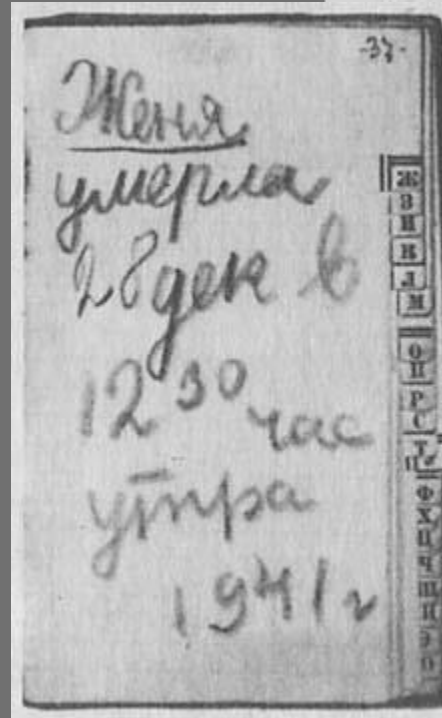 -37-
Женя
умерла
28 дек в
12 30 час
утра
1941 г
Ж
З
И
К
Л
М
О
П
Р
С
Т
Ф
Х
Ц
Ч
Щ
Э